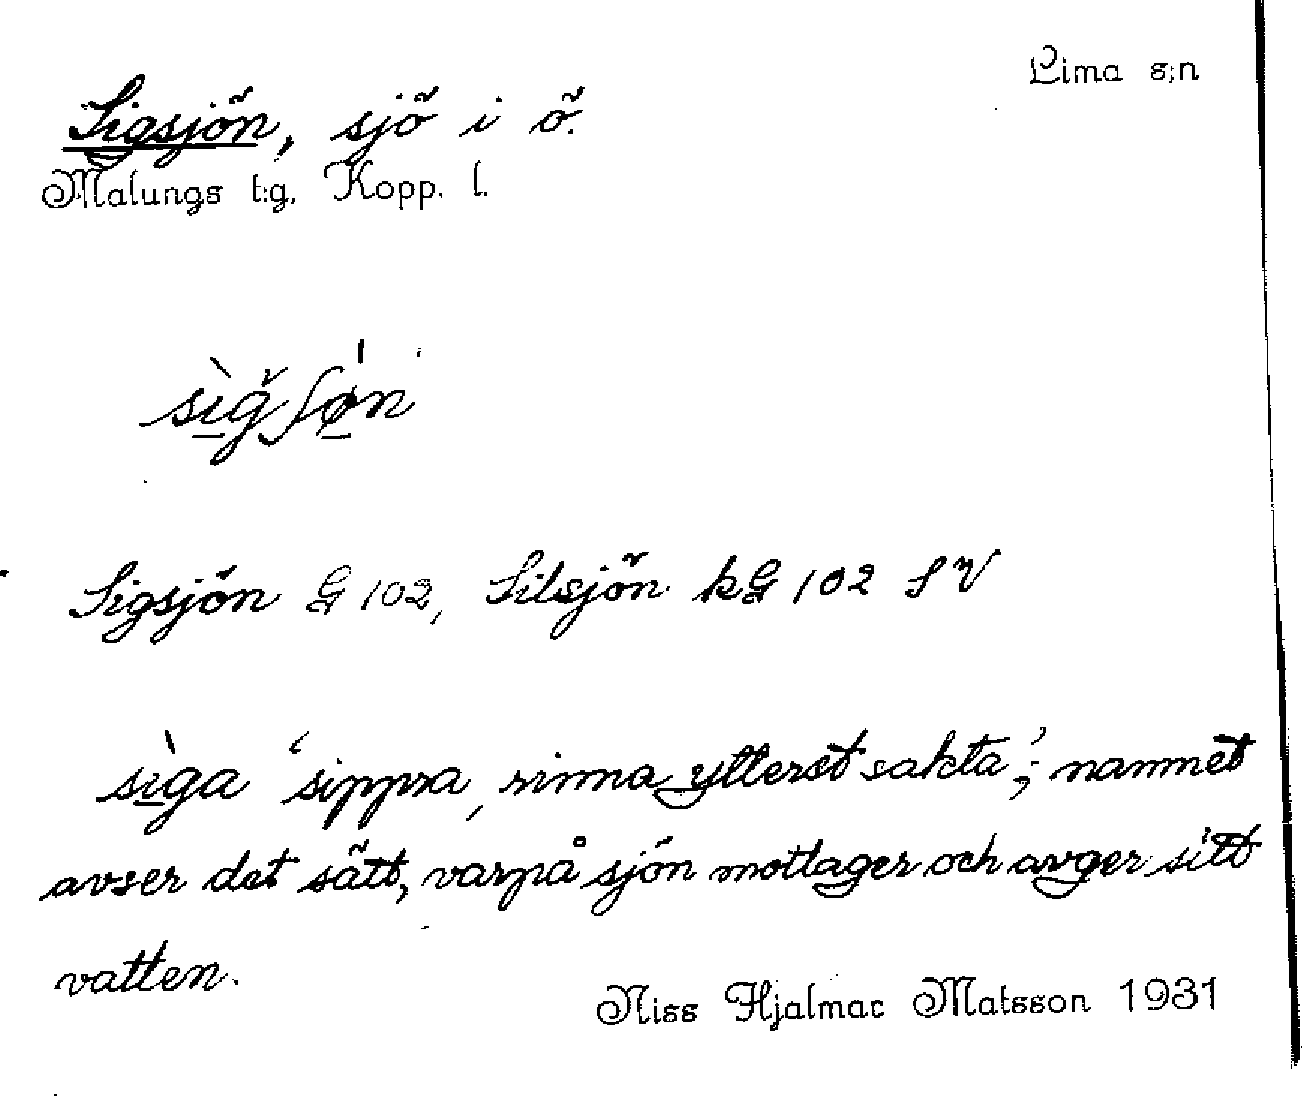 Lima s:n
Sigsjön, sjö i ö.
Malungs t:g, Kopp. l.
Sigsjön G 102, Silsjön kG 102 SV
sìga 'sippra, rinna ytterst sakta'; namnet
avser det sätt, varpå sjön mottager och avger sitt
vatten.
Niss Hjalmar Matsson 1931